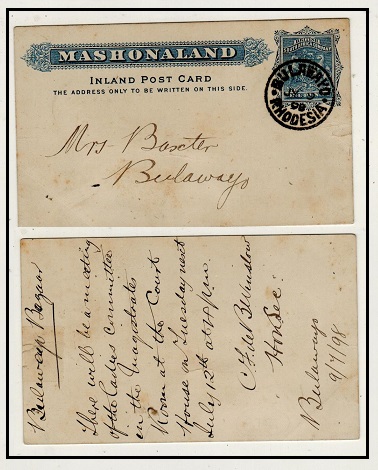 MASHONALAND
INLAND POST CARD
THE ADDRESS ONLY TO BE WRITTEN ON THIS SIDE.
BULAWAYO
98
RHODESIA
Mrs Baxter
Bulawayo
Bulawayo Bazaar
There will be a meeting
of the Ladies Committee
in the Magistrates
Room at the Court
House on Tuesday next
July 12th at 4 p.m.
Hon Sec.
Bulawayo
9/7/98